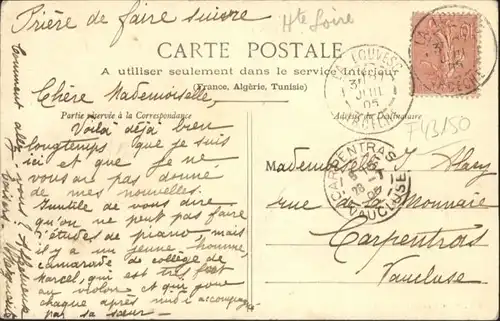 Prière de faire suivre
Hte Loire
CARTE POSTALE
A utiliser seulement dans le service Intérieur
(France, Algérie, Tunisie)
Partie réservée à la Correspondance
Adresse du Destinataire
Chère Mademoiselle,
Voilà déjà bien
longtemps que je suis
ici et que je ne
vous ai pas donné
de mes nouvelles.
Inutile de vous dire
qu'on ne peut pas faire
d'études de piano, mais
il y a un jeune homme,
camarade de collège de
Marcel, qui est très fort
au violon et que
chaque après midi accompagné
par sa sœur
Comment allez vous?
Mademoiselle J.
rue de la Monnaie
Carpentras
Vaucluse
CARPENTRAS
VAUCLUSE
LALOUVESC
31
JUIL
05
ARDECHE
F43/50